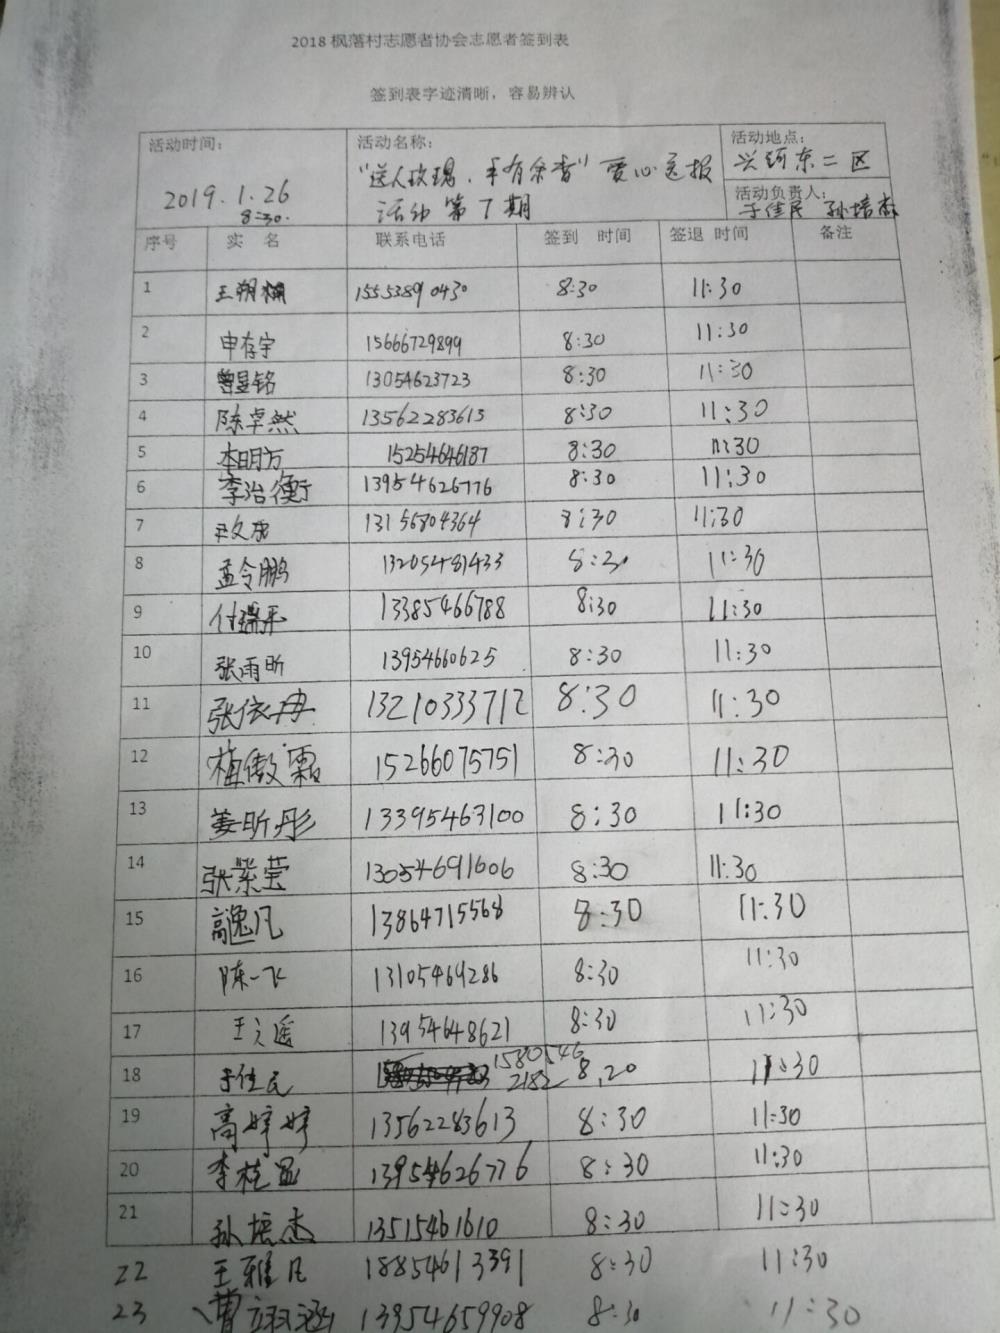 2018 枫落村志愿者协会志愿者签到表
签到表字迹清晰，容易辨认
活动时间： 2019.1.26 8:30.
活动名称： "送人玫瑰，手有余香" 爱心送报
活动 第7期
活动地点： 兴河东二区
活动负责人： 于佳民 孙培杰
序号 实 名 联系电话 签到 时间 签退 时间 备注
1 王朔楠 15553890430 8:30 11:30
2 申存宇 15666729899 8:30 11:30
3 曾昱铭 13054623723 8:30 11:30
4 陈卓然 13562283613 8:30 11:30
5 李明方 15254646187 8:30 11:30
6 李治衡 13954626776 8:30 11:30
7 尹文东 13156804364 8:30 11:30
8 孟令鹏 13205481433 8:30 11:30
9 付瑞平 13385466788 8:30 11:30
10 张雨昕 13954660625 8:30 11:30
11 张依冉 13210333712 8:30 11:30
12 植傲霜 15266075751 8:30 11:30
13 姜昕彤 13395463100 8:30 11:30
14 张紫莹 13054691606 8:30 11:30
15 高逸凡 13864715568 8:30 11:30
16 陈一飞 13105469286 8:30 11:30
17 王 遥 13954648621 8:30 11:30
18 于佳民 15805462182 8.20 11:30
19 高婷婷 13562283613 8:30 11:30
20 李桂显 13954626776 8:30 11:30
21 孙培杰 13515461610 8:30 11:30
22 王雅凡 18854613391 8:30 11:30
23 曹翊涵 13954659908 8:30 11:30